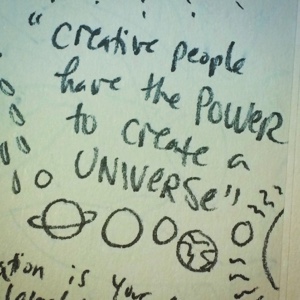 "Creative people
have the POWER
to create a
UNIVERSE"
is your